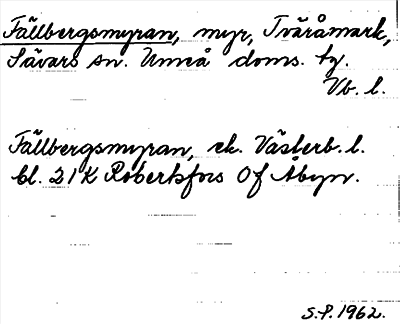 Fällbergsmyran, myr, Tväråmark,
Sävars sn. Umeå doms. tg.
Vb. l.
Fällbergsmyran, ek. Västerb. l.
bl. 21K Robertsfors 0f Åbyn.
S.P. 1962.